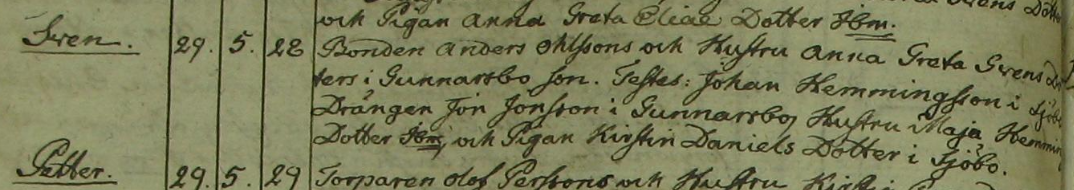 och Pigan Anna Greta Eliæ Dotter Ibm.
Sven. 29. 5. 28 Bonden Anders Ohlssons och Hustru Anna Greta Svens Dot
ters i Gunnarsbo son. Testes: Johan Hemmingsson i Sjöbo
Drängen Jon Jönsson i Gunnarsbo, Hustru Maja Hemmin
Dotter Ibm, och Pigan Kirstin Daniels Dotter i Sjöbo.
Petter. 29. 5. 29 Torparen Olof Perssons och Hustru Kirstin